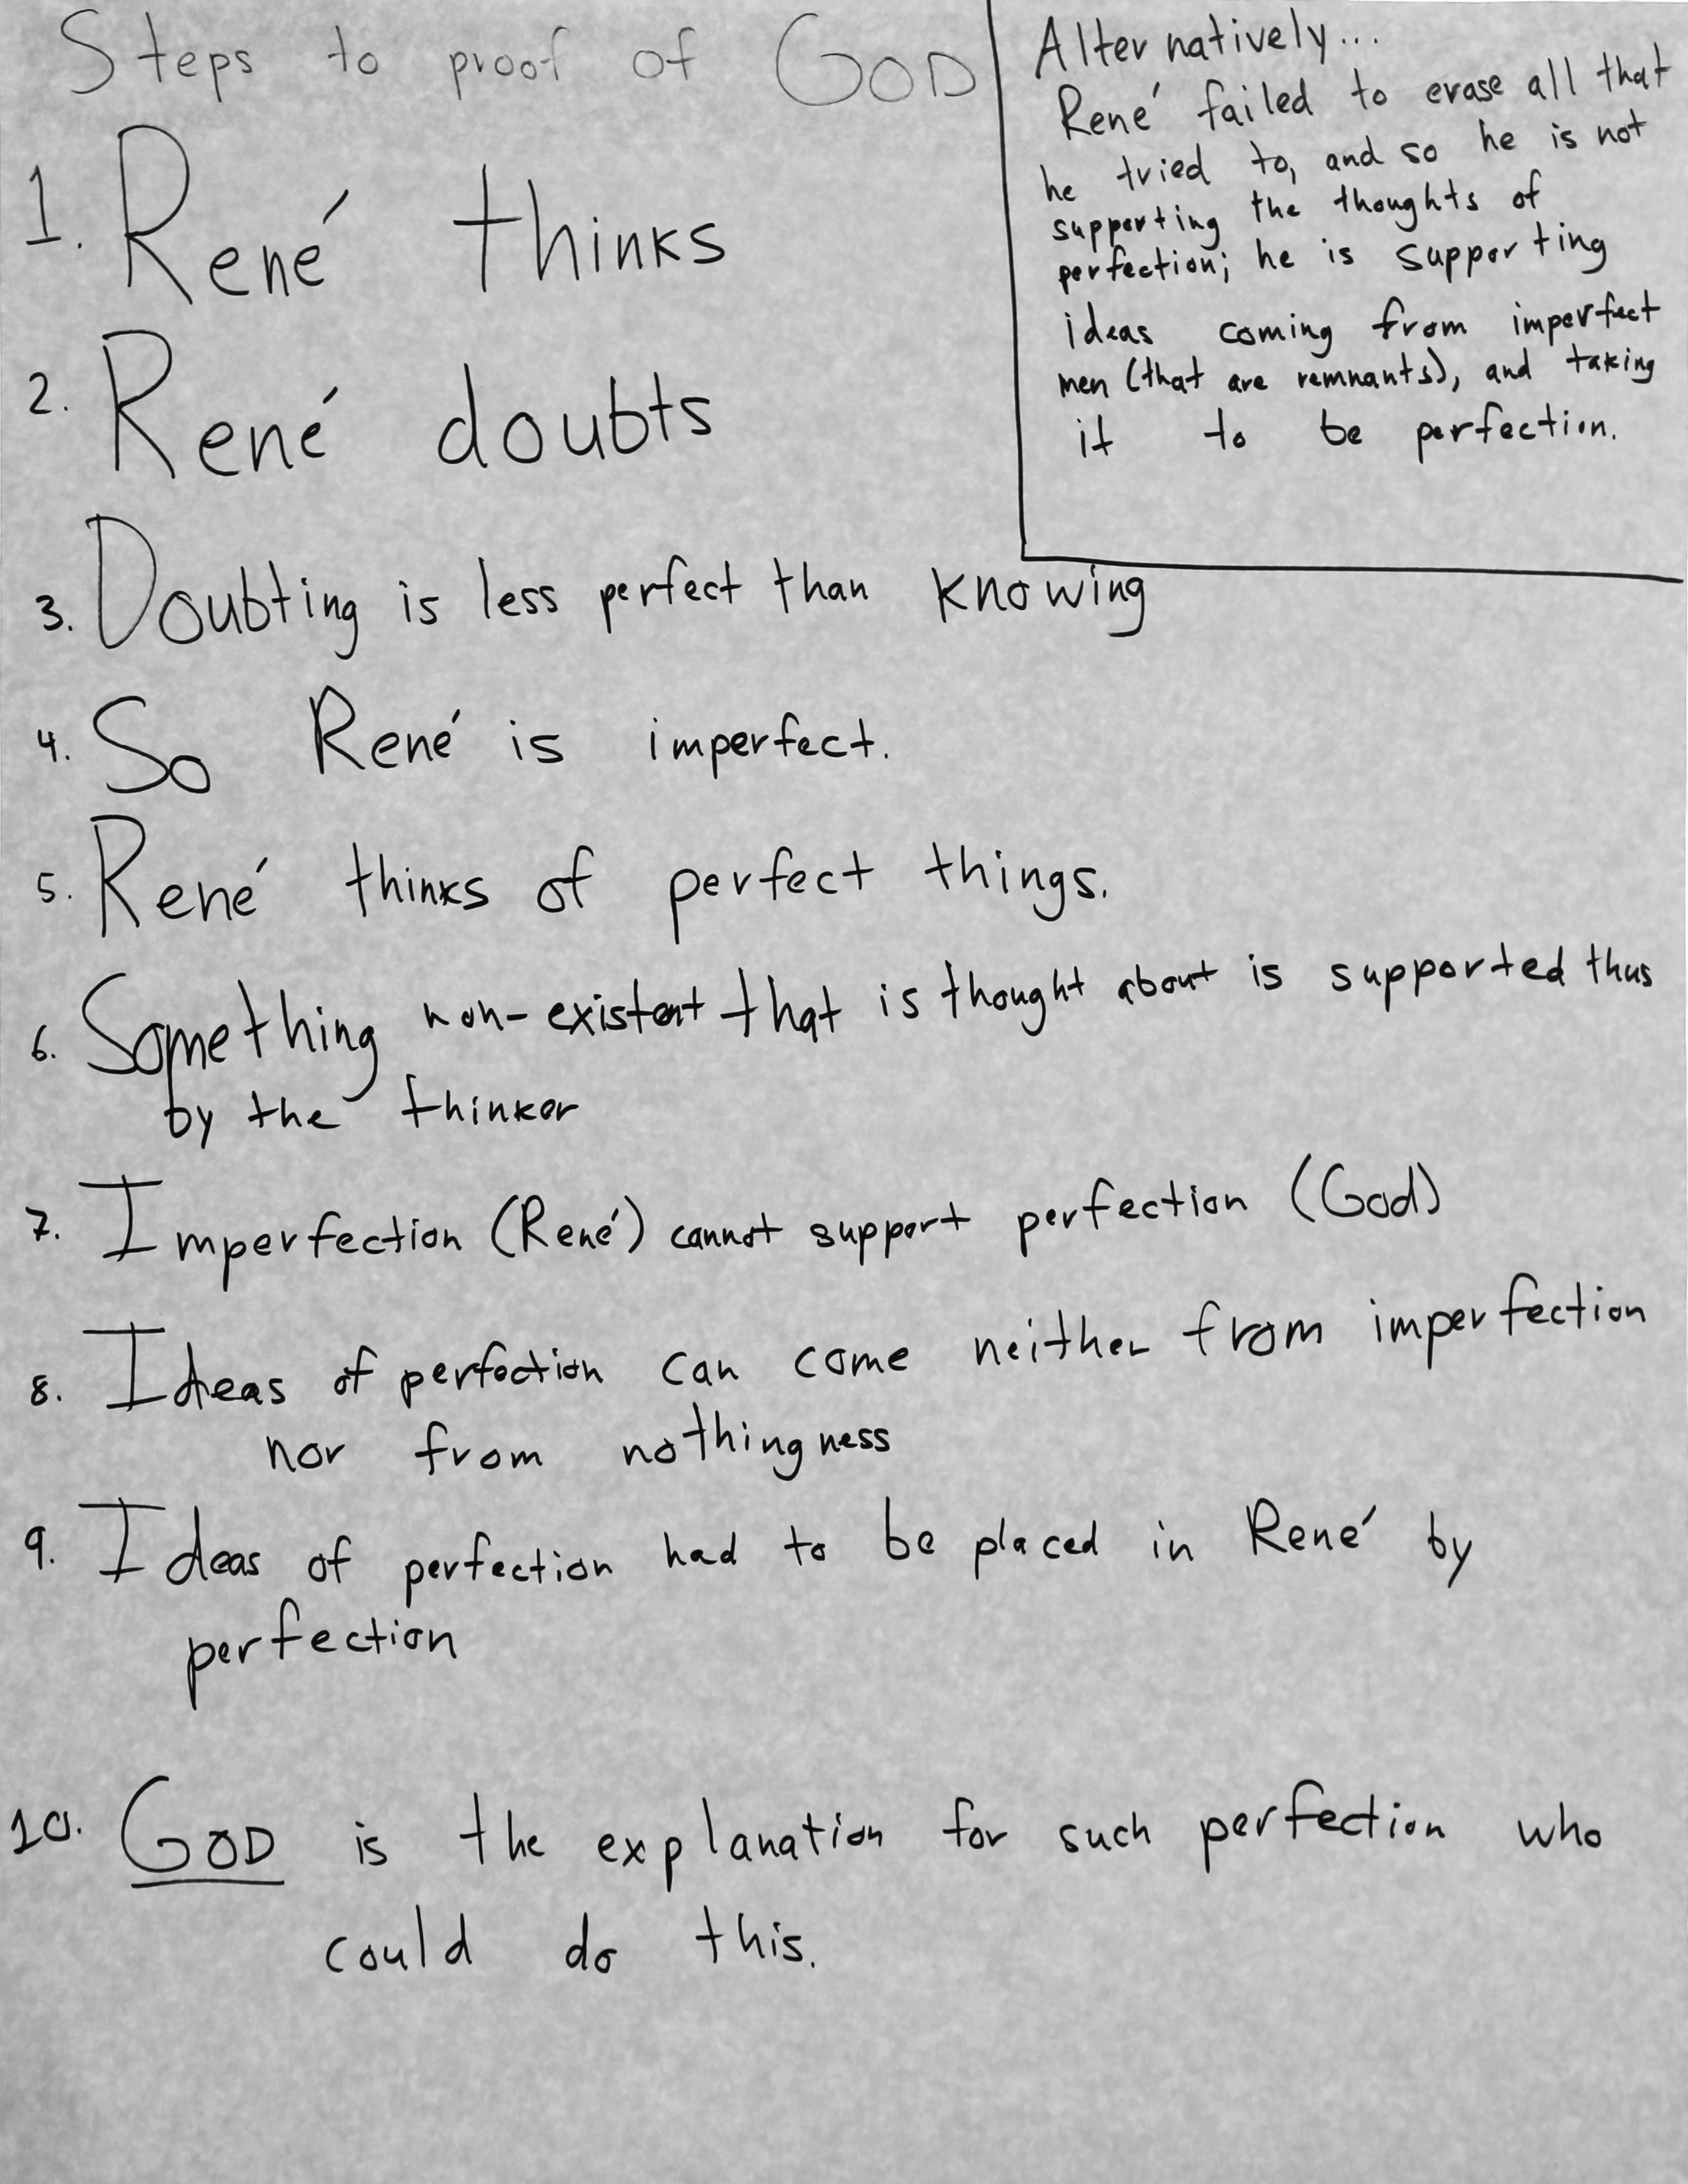 Steps to proof of GOD
1. René thinks
2. René doubts
3. Doubting is less perfect than knowing
4. So René is imperfect.
5. René thinks of perfect things.
6. Something non-existent that is thought about is supported thus
by the thinker
7. Imperfection (René) cannot support perfection (God)
8. Ideas of perfection can come neither from imperfection
nor from nothingness
9. Ideas of perfection had to be placed in René by
perfection
10. GOD is the explanation for such perfection who
could do this.
Alternatively...
René failed to erase all that
he tried to, and so he is not
supporting the thoughts of
perfection; he is supporting
ideas coming from imperfect
men (that are remnants), and taking
it to be perfection.